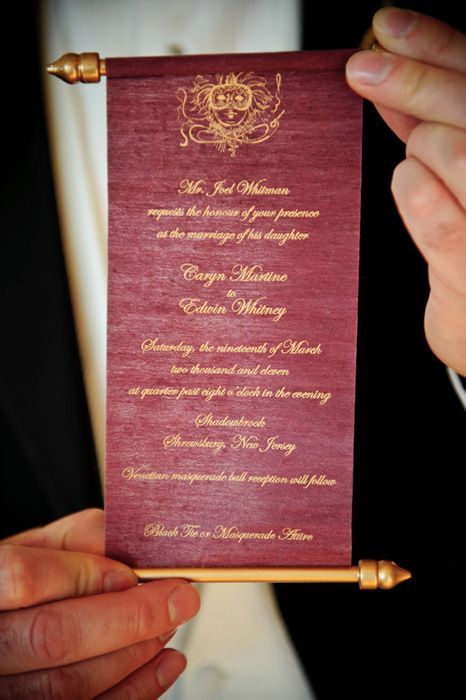 Mr. Joel Whitman
requests the honour of your presence
at the marriage of his daughter
Caryn Martine
to
Edwin Whitney
Saturday, the nineteenth of March
two thousand and eleven
at quarter past eight o'clock in the evening
Shadowbrook
Shrewsbury, New Jersey
Venetian masquerade ball reception will follow
Black Tie or Masquerade Attire